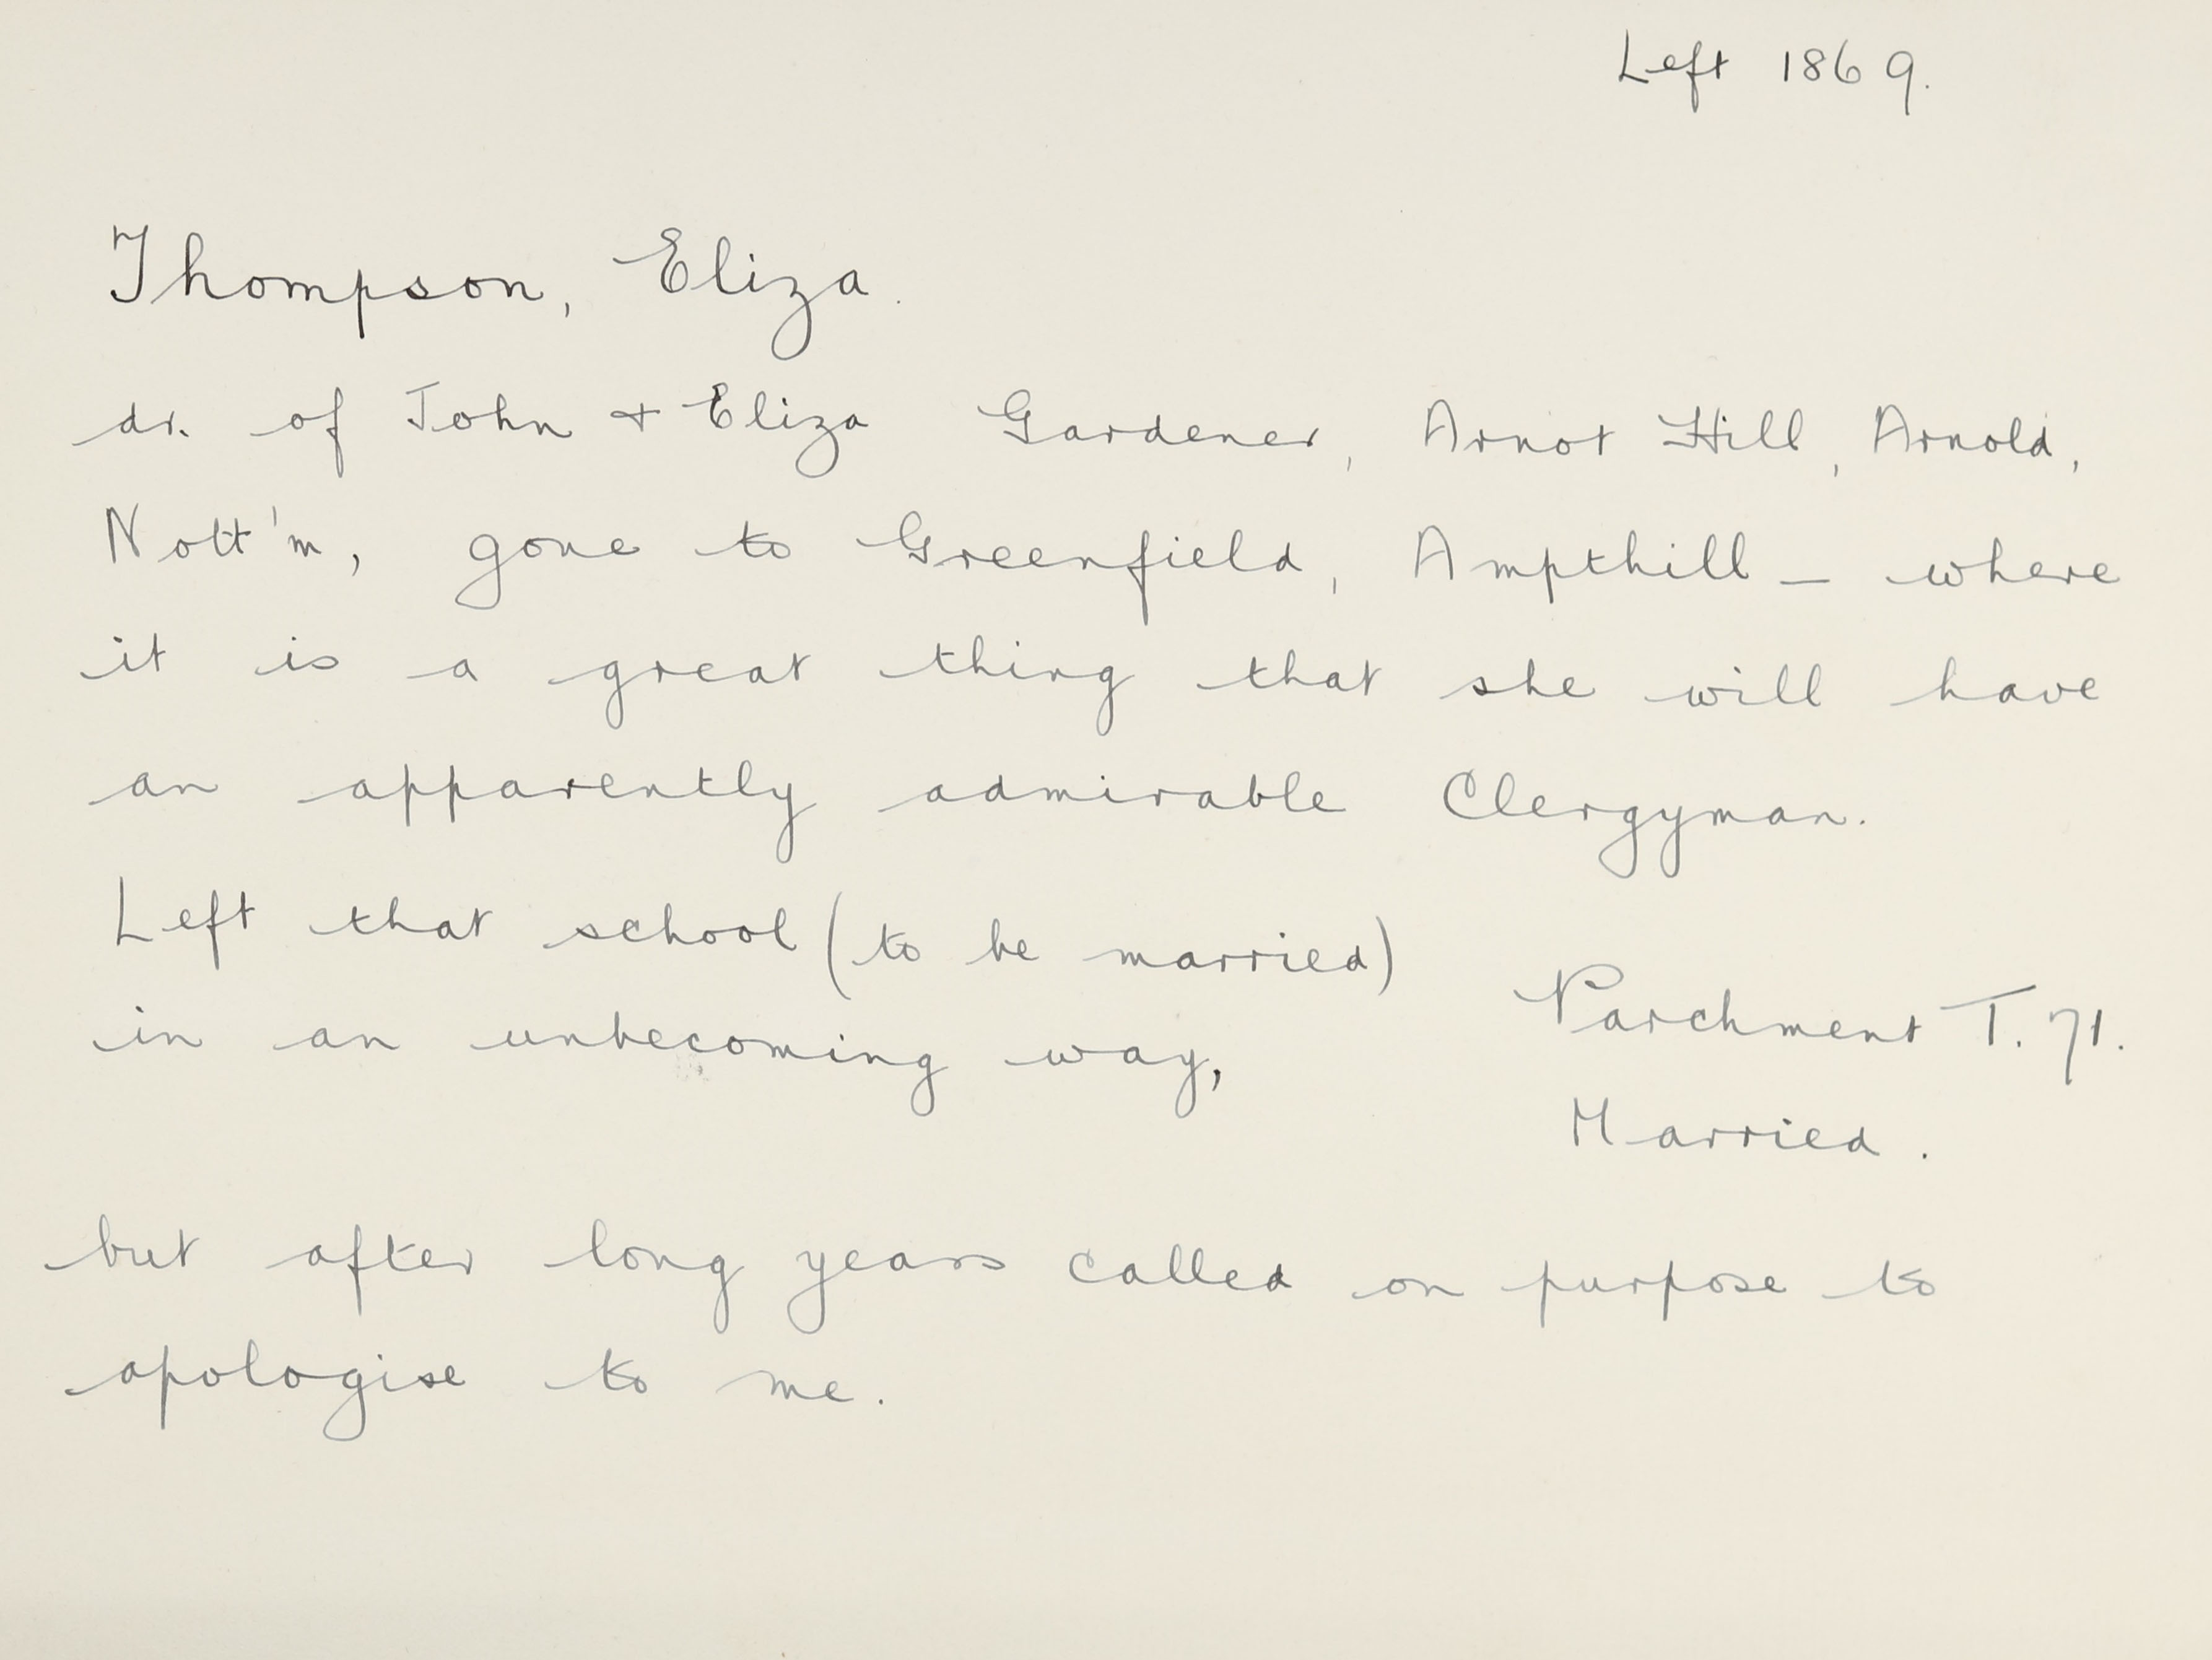 Left 1869.
Thompson, Eliza.
dr. of John + Eliza Gardener, Arnot Hill, Arnold,
Nott'm, gone to Greenfield, Ampthill — where
it is a great thing that she will have
an apparently admirable Clergyman.
Left that school (to be married)
in an unbecoming way,
Parchment T. 71.
Married.
but after long years called on purpose to
apologise to me.